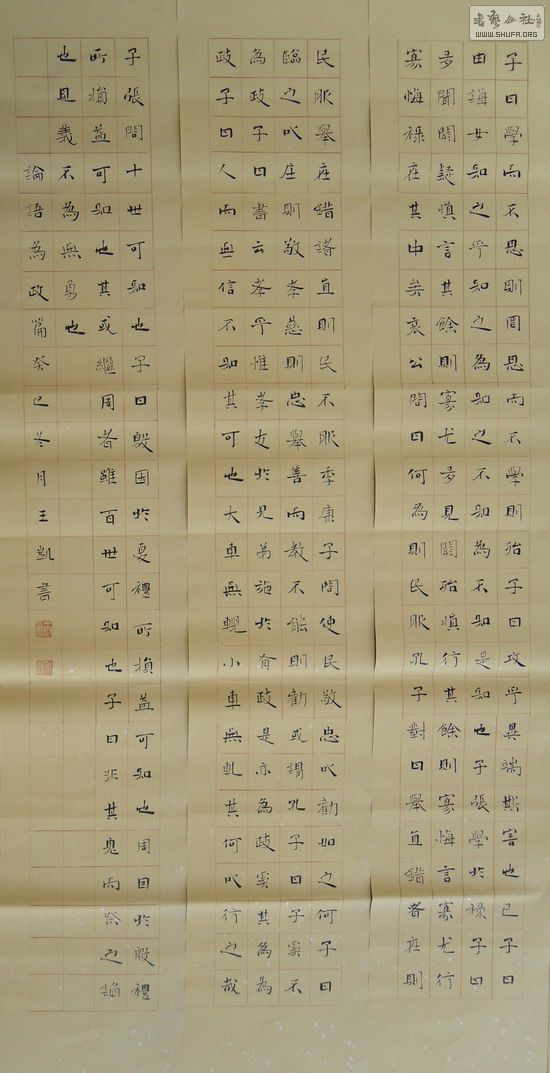 子曰學而不思則罔思而不學則殆子曰攻乎異端斯害也已子曰
由誨女知之乎知之為知之不知為不知是知也子張學於祿子曰
多聞闕疑慎言其餘則寡尤多見闕殆慎行其餘則寡悔言寡尤行
寡悔祿在其中矣哀公問曰何為則民服孔子對曰舉直錯者枉則
民服舉枉錯諸直則民不服季康子問使民敬忠以勸如之何子曰
臨之以莊則敬孝慈則忠舉善而教不能則勸或謂孔子曰子奚不
為政子曰書云孝乎惟孝友於兄弟施於有政是亦為政奚其為為
政子曰人而無信不知其可也大車無輗小車無軏其何以行之哉
子張問十世可知也子曰殷因於夏禮所損益可知也周因於殷禮
所損益可知也其或繼周者雖百世可知也子曰非其鬼而祭之諂
也見義不為無勇也
論語為政篇癸巳冬月王凱書
书艺公社
WWW.SHUFA.ORG